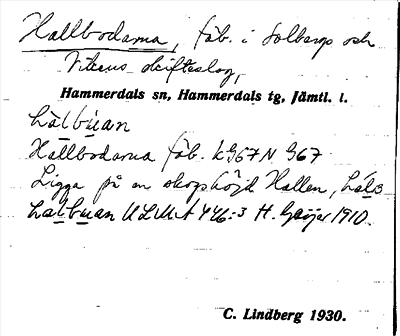 Hallbodarna, fäb. i Solbergs och
Vikens skifteslag,
Hammerdals sn, Hammerdals tg, Jämtl. l.
Hallbodarna fäb. k G67 N G67
Ligga på en skogshöjd Hallen,
ULMA 446:3 H. Geijer 1910.
C. Lindberg 1930.